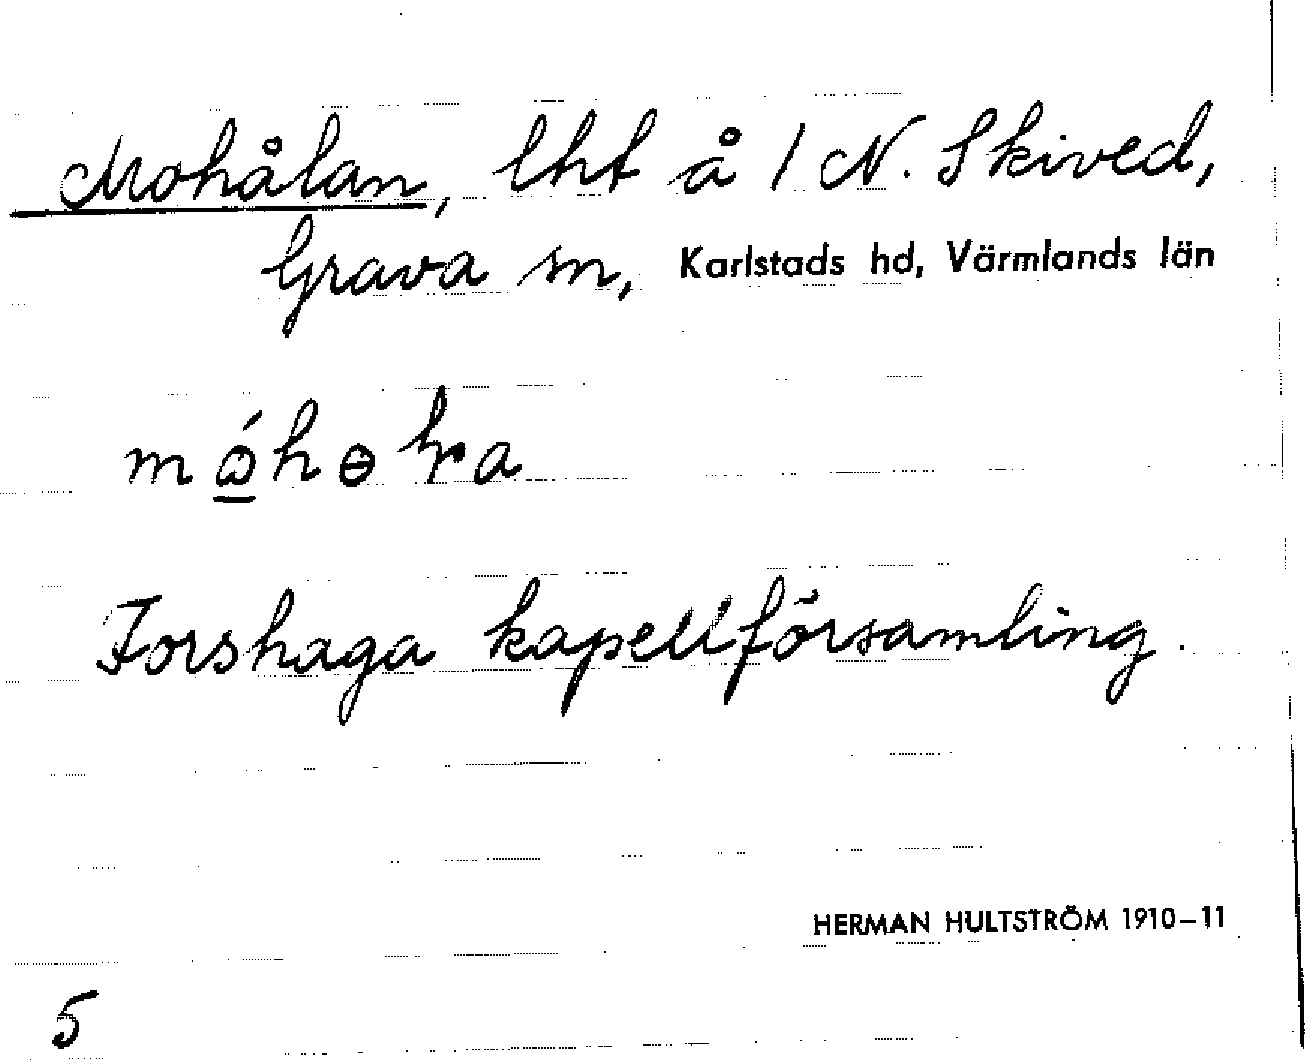 Mohålan, lht å 1 N. Skived,
Grava sn, Karlstads hd, Värmlands län
Forshaga kapellförsamling.
HERMAN HULTSTRÖM 1910–11
5